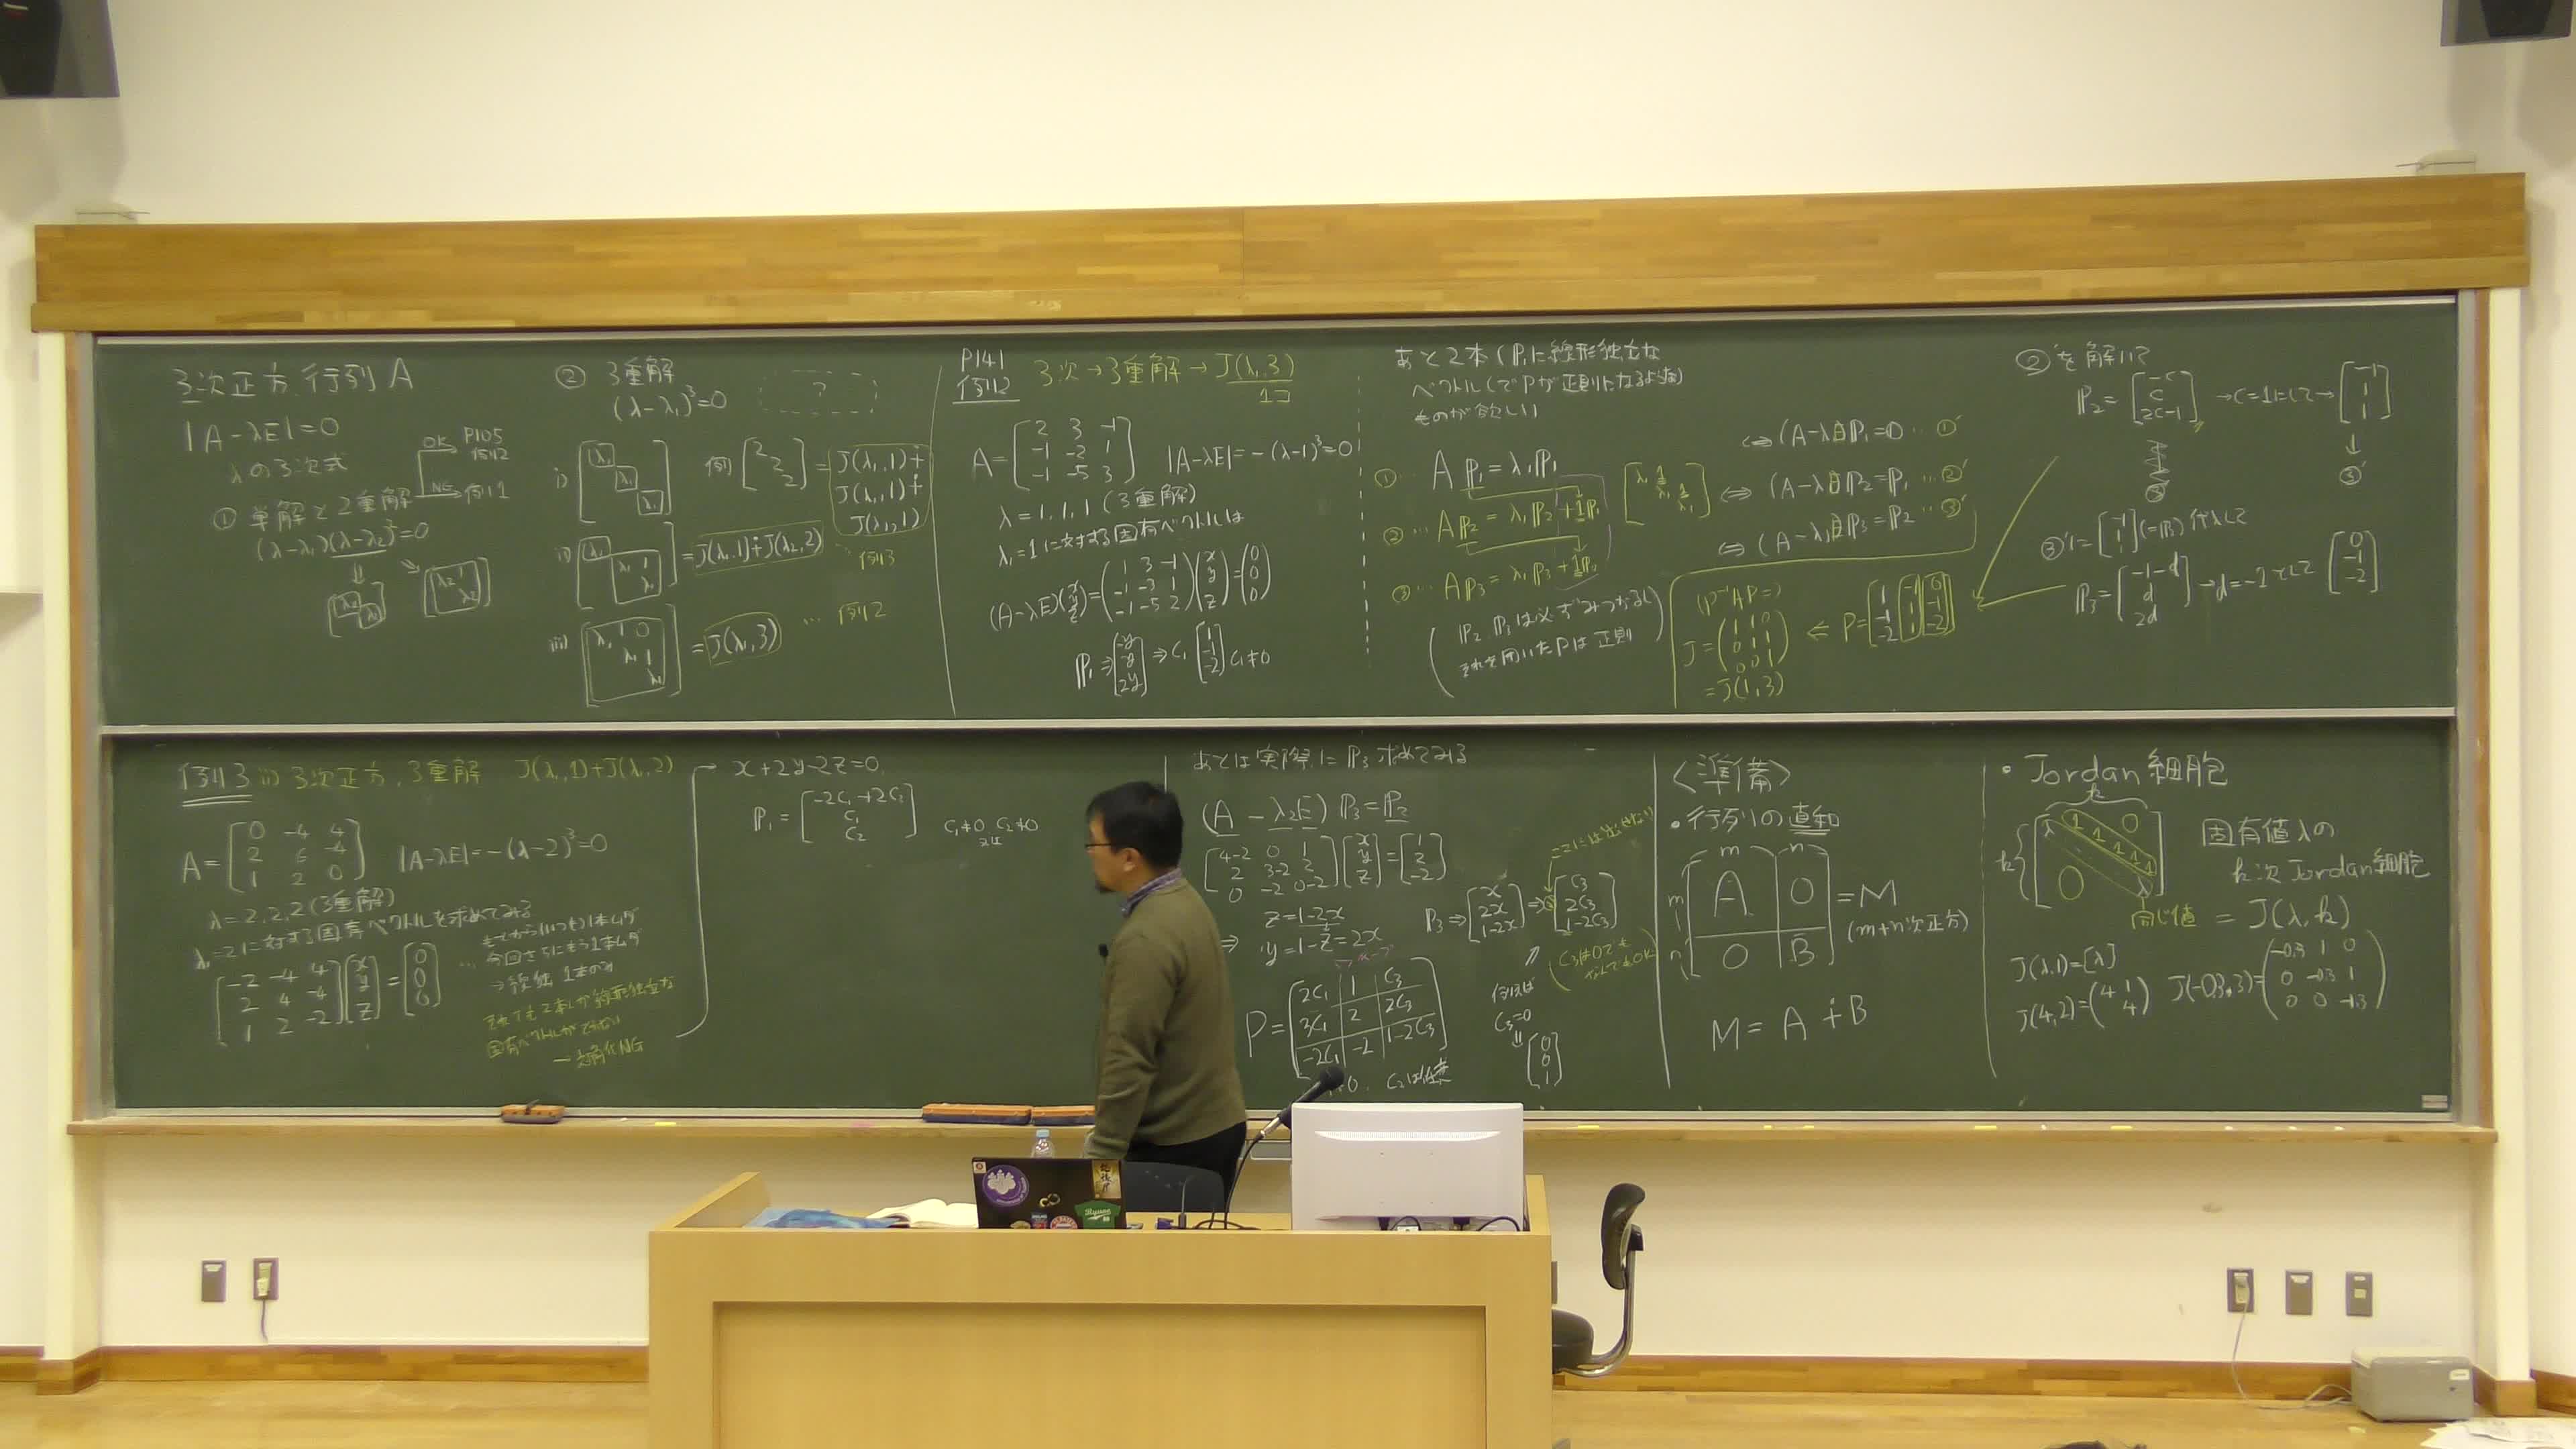 3次正方行列 A
|A-λE|=0
λの3次式
OK → P105 例2
NG → 例1
① 単解と2重解
(λ-λ₁)(λ-λ₂)²=0
② 3重解
(λ-λ₁)³=0
?
i)
例 [2 2 2] = J(λ₁,1)∔
J(λ₁,1)∔
J(λ₁,1)
ii)
=J(λ₁,1)∔J(λ₂,2) … 例3
iii)
λ₁ 1 0
λ₁ 1
λ₁
=J(λ₁,3) … 例2
P141
例2
3次→3重解→J(λ₁,3)
1コ
A= [2 3 -1
-1 -2 1
-1 -5 3]
|A-λE|=-(λ-1)³=0
λ=1,1,1 (3重解)
λ₁=1に対する固有ベクトルは
(A-λE)(x y z)=(1 3 -1
-1 -3 1
-1 -5 2)(x y z)=(0 0 0)
P₁⇒[-y y 2y]⇒C₁[1 -1 -2] C₁≠0
あと2本(P₁に線形独立な
ベクトル(でPが正則になるような)
ものが欲しい
①… AP₁=λ₁P₁
②… AP₂=λ₁P₂+1P₁
③… AP₃=λ₁P₃+1P₂
⇔(A-λ₁E)P₁=0…①'
⇔(A-λ₁E)P₂=P₁…②'
⇔(A-λ₁E)P₃=P₂…③'
P₂,P₃は必ずみつかるし
それを用いたPは正則
(P⁻¹AP=)
J=(1 1 0
0 1 1
0 0 1)
=J(1,3)
⇐ P=[1 -1 0
-1 1 -1
-2 1 -2]
②'を解いて
P₂=[-c c 2c-1] →c=1にして→[-1 1 1]
↓
③'
③'に[-1 1 1](=P₂)代入して
P₃=[-1-d d 2d] →d=-1として [0 -1 -2]
例3 ii) 3次正方,3重解 J(λ₁,1)∔J(λ₁,2)
A=[0 -4 4
2 6 -4
1 2 0]
|A-λE|=-(λ-2)³=0
λ=2,2,2(3重解)
λ₁=2に対する固有ベクトルを求めてみる
[-2 -4 4
2 4 -4
1 2 -2][x y z]=[0 0 0] …
もとから(いつも)1本ムダ
今回さらにもう1本ムダ
→線独 1本のみ
それでも2本しか線形独立な
固有ベクトルができない
→対角化NG
x+2y-2z=0
P₁=[-2C₁+2C₂
C₁
C₂]
C₁≠0, C₂≠0
又は
あとは実際に P₃ 求めてみる
(A-λ₂E) P₃=P₂
[4-2 0 1
2 3-2 2
0 -2 0-2][x y z]=[1 2 -2]
⇒
z=1-2x
y=1-z=2x
P₃⇒[x 2x 1-2x]⇒[C₃ 2C₃ 1-2C₃]
(C₃は0でも
なんでもOK)
例えば
C₃=0
⇓
[0 0 1]
P=[2C₁ 1 C₃
3C₁ 2 2C₃
-2C₁ -2 1-2C₃]
<準備>
・行列の直和
m n
m A O
n O B
=M
(m+n次正方)
M=A∔B
・Jordan細胞
k
k
λ 1 1 1 1 λ
O
O
同じ値
固有値λの
k次Jordan細胞
=J(λ,k)
J(λ,1)=[λ]
J(4,2)=(4 1
4)
J(-0.3,3)=(-0.3 1 0
0 -0.3 1
0 0 -0.3)